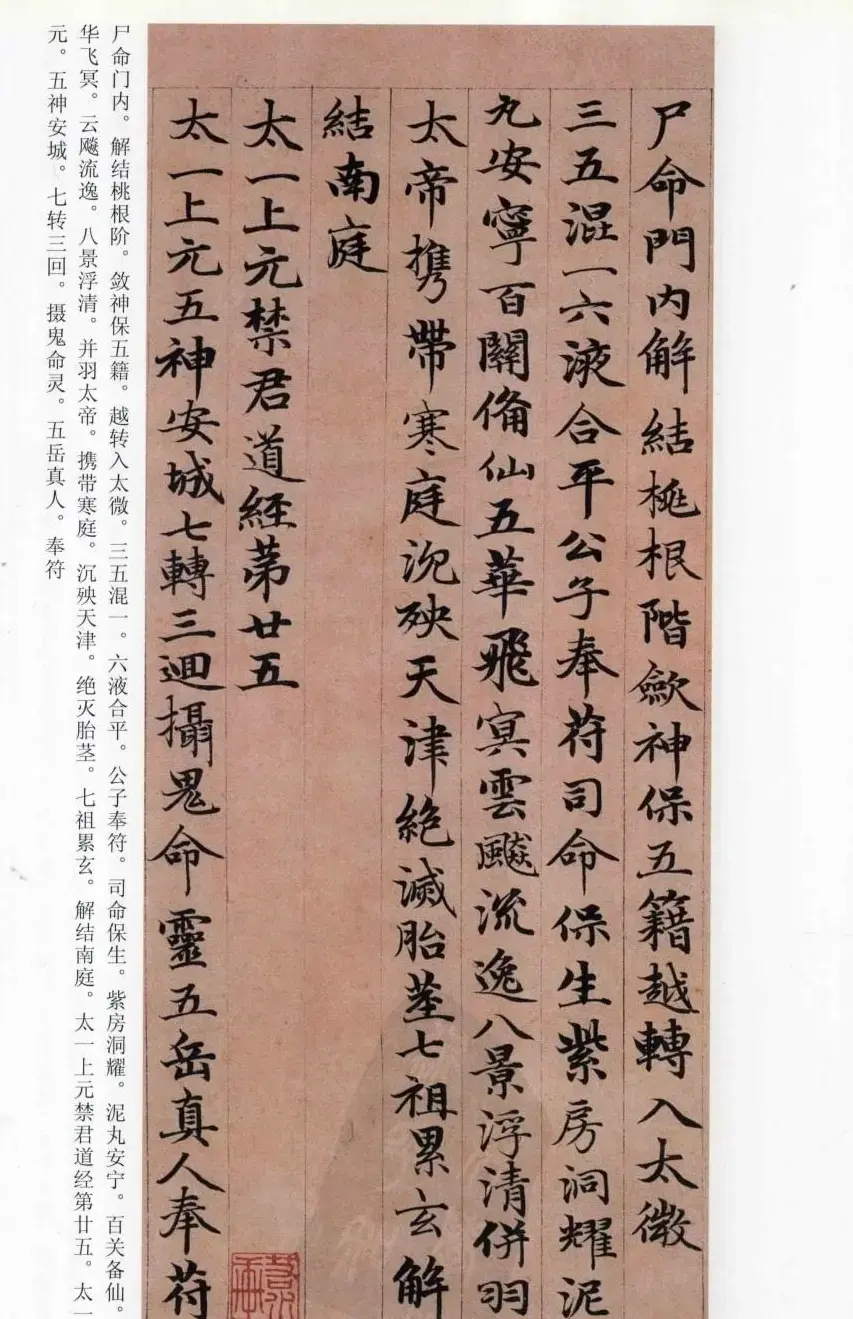 尸命門内解結桃根階斂神保五籍越轉入太微
三五混一六液合平公子奉苻司命保生紫房洞耀泥
丸安寧百關備仙五華飛冥雲飈流逸八景浮清併羽
太帝携帶寒庭沉殃天津絶滅胎莖七祖累玄解
結南庭
太一上元禁君道經苐廿五
太一上元五神安城七轉三迴攝鬼命靈五岳真人奉苻
尸命门内。解结桃根阶。敛神保五籍。越转入太微。三五混一。六液合平。公子奉符。司命保生。紫房洞耀。泥丸安宁。百关备仙。五
华飞冥。云飚流逸。八景浮清。并羽太帝。携带寒庭。沉殃天津。绝灭胎茎。七祖累玄。解结南庭。太一上元禁君道经第廿五。太一上
元。五神安城。七转三回。摄鬼命灵。五岳真人。奉符